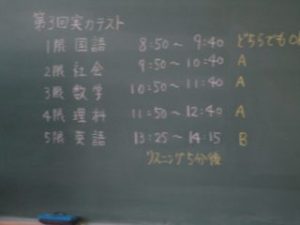 第3回実力テスト
1限 国語 8:50〜9:40 どちらでもOK
2限 社会 9:50〜10:40 A
3限 数学 10:50〜11:40 A
4限 理科 11:50〜12:40 A
5限 英語 13:25〜14:15 B
リスニング5分後